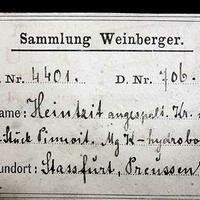 Sammlung Weinberger.
Nr. 4401. D. Nr. 706.
ame: Heintzit angespalt. Kr.
Stück Pinnoit. Mg K-hydrobo
undort: Stassfurt, Preussen